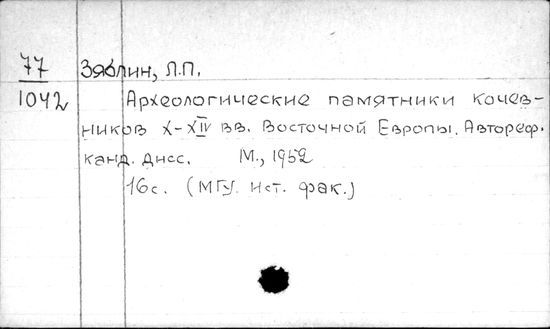 77 Зяблин, Л.П.
1042 Археологические памятники кочев-
ников X-XIV вв. Восточной Европы. Автореф.
канд. дисс. М., 1952
16с. (МГУ. Ист. фак.)